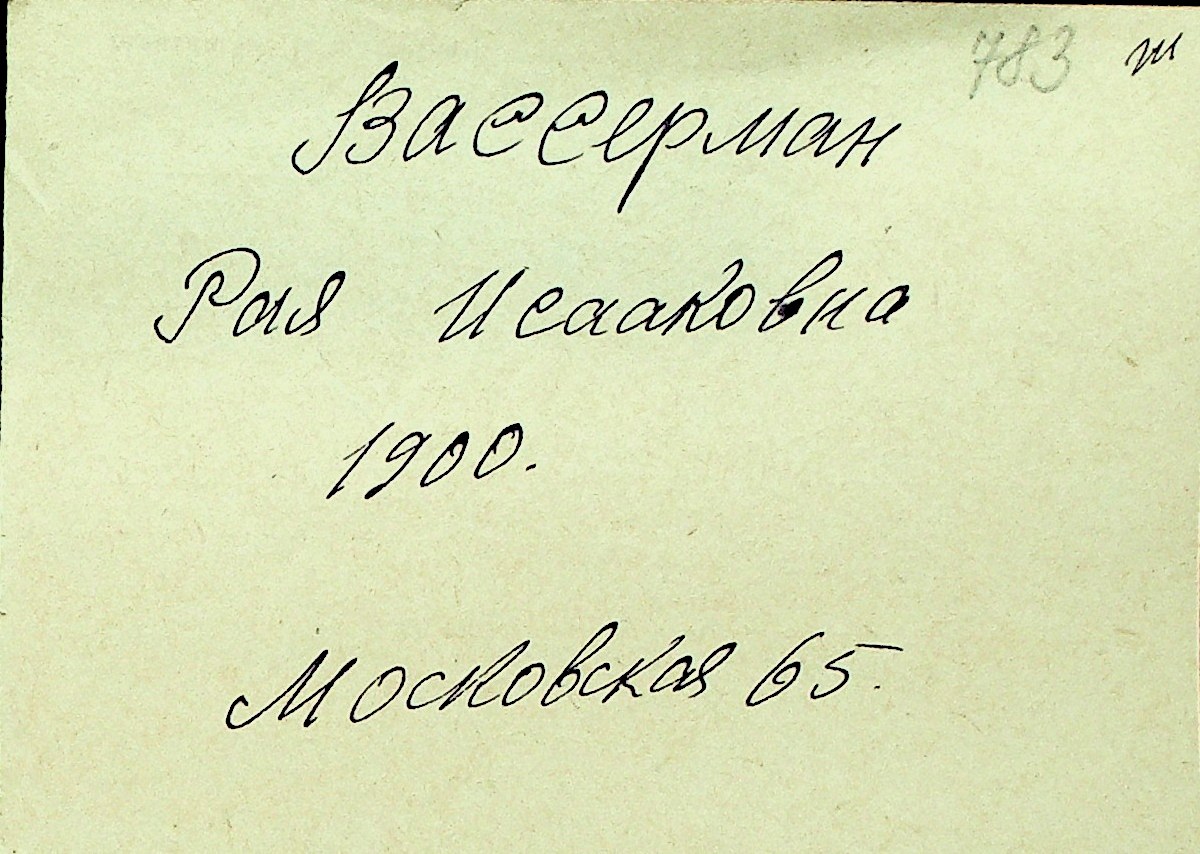 783 ж
Вассерман
Рая Исааковна
1900.
Московская 65.